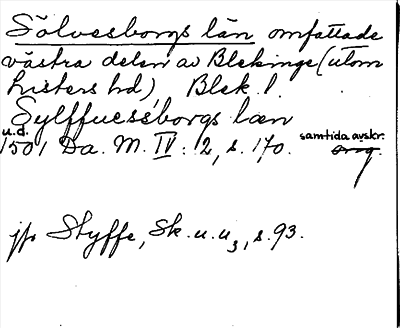 Sölvesborgs län omfattade
västra delen av Blekinge (utom
Listers hd) Blek. l.
Sylffuessborgs læn
u.d. samtida avskr.
1501 Da. M. IV: 2, s. 170. orig.
jfr Styffe, Sk. u. u 3, s. 93.